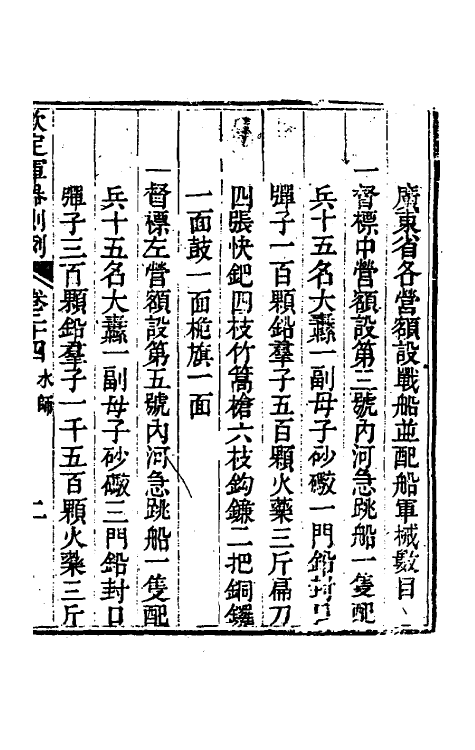 廣東省各營額設戰船並配船軍械數目
一督標中營額設第三號內河急跳船一隻配
兵十五名大纛一副母子砂礮一門鉛封口
彈子一百顆鉛羣子五百顆火藥三斤扁刀
四張快鈀四枝竹篙槍六枝鈎鐮二把銅鑼
一面鼓一面桅旗一面
一督標左營額設第五號內河急跳船一隻配
兵十五名大纛一副母子砂礮三門鉛封口
彈子三百顆鉛羣子一千五百顆火藥三斤
欽定軍器則例 卷二十四 水師 二